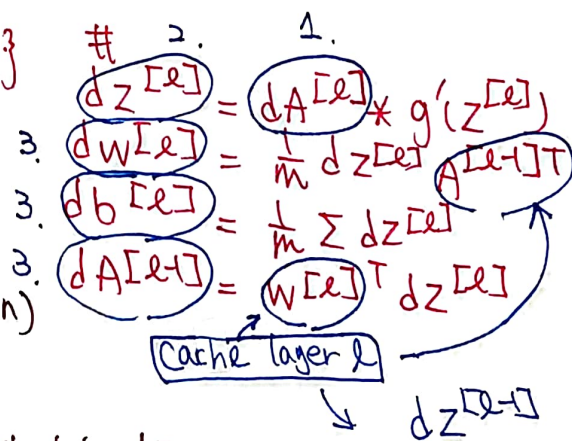 } # 2. 1.
dz[l] = dA[l] * g'(z[l])
3. dw[l] = 1/m dz[l] A[l-1]T
3. db[l] = 1/m Σ dz[l]
3. dA[l-1] = w[l]T dz[l]
n)
cache layer l
dz[l-1]